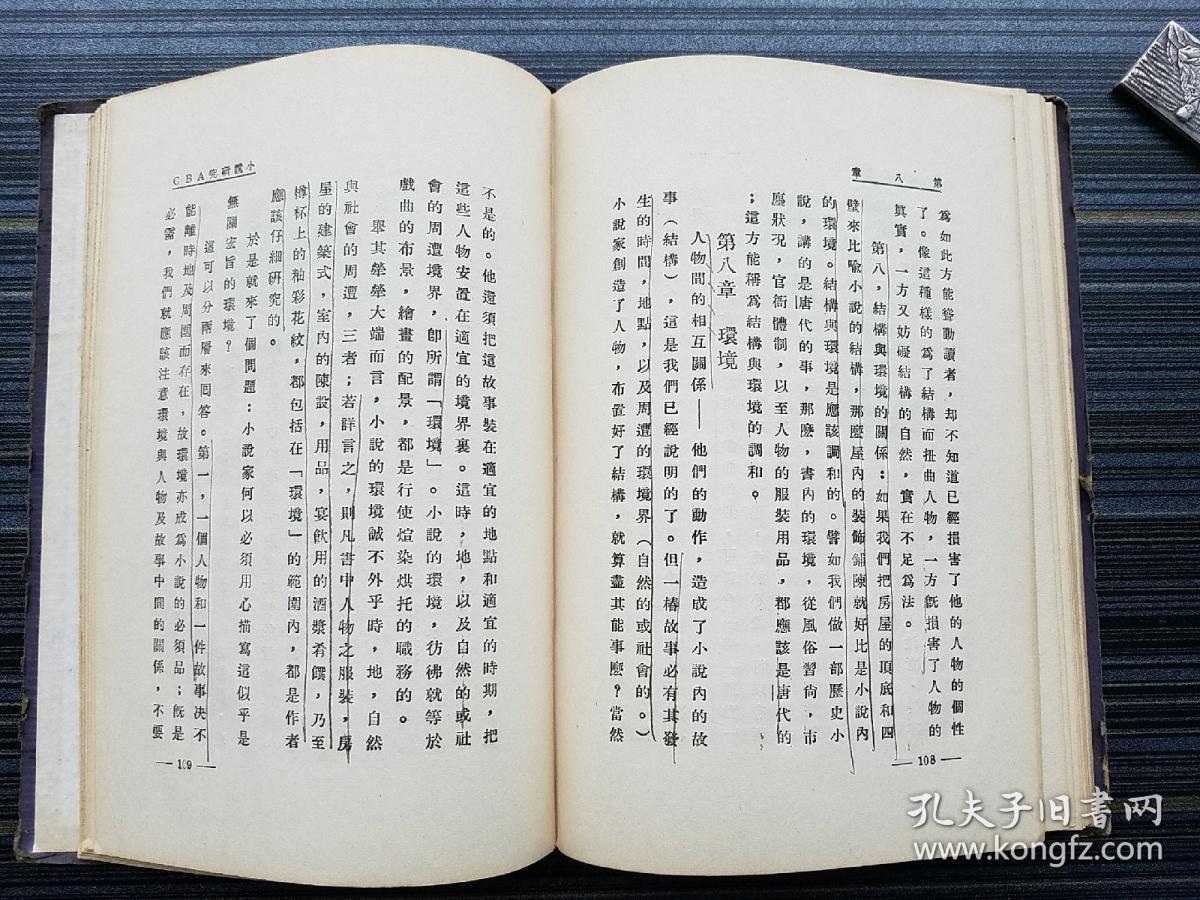 第八章
為如此方能聳動讀者，却不知道已經損害了他的人物的個性
了。像這種樣的為了結構而扭曲人物，一方旣損害了人物的
眞實，一方又妨礙結構的自然，實在不足為法。
第八，結構與環境的關係：如果我們把房屋的頂底和四
壁來比喩小說的結構，那麼屋內的裝飾鋪陳就好比是小說內
的環境。結構與環境是應該調和的。譬如我們做一部歷史小
說，講的是唐代的事，那麼，書內的環境，從風俗習尙，市
廛狀況，官衙體制，以至人物的服裝用品，都應該是唐代的
；這方能稱為結構與環境的調和。
第八章 環境
人物間的相互關係——他們的動作，造成了小說內的故
事（結構），這是我們已經說明的了。但一樁故事必有其發
生的時間，地點，以及周遭的環境界（自然的或社會的。）
小說家創造了人物，布置好了結構，就算盡其能事麼？當然
— 108 —
小說研究ABC
不是的。他還須把這故事裝在適宜的地點和適宜的時期，把
這些人物安置在適宜的境界裏。這時，地，以及自然的或社
會的周遭境界，卽所謂「環境」。小說的環境，彷彿就等於
戲曲的布景，繪畫的配景，都是行使煊染烘托的職務的。
舉其犖犖大端而言，小說的環境誠不外乎時，地，自然
與社會的周遭，三者；若詳言之，則凡書中人物之服裝，房
屋的建築式，室內的陳設，用品，宴飮用的酒漿肴饌，乃至
樽杯上的釉彩花紋，都包括在「環境」的範圍內，都是作者
應該仔細硏究的。
於是就來了個問題：小說家何以必須用心描寫這似乎是
無關宏旨的環境？
這可以分兩層來回答。第一，一個人物和一件故事决不
能離時地及周圍而存在，故環境亦成為小說的必須品；旣是
必需，我們就應該注意環境與人物及故事中間的關係，不要
— 109 —
孔夫子旧书网
www.kongfz.com